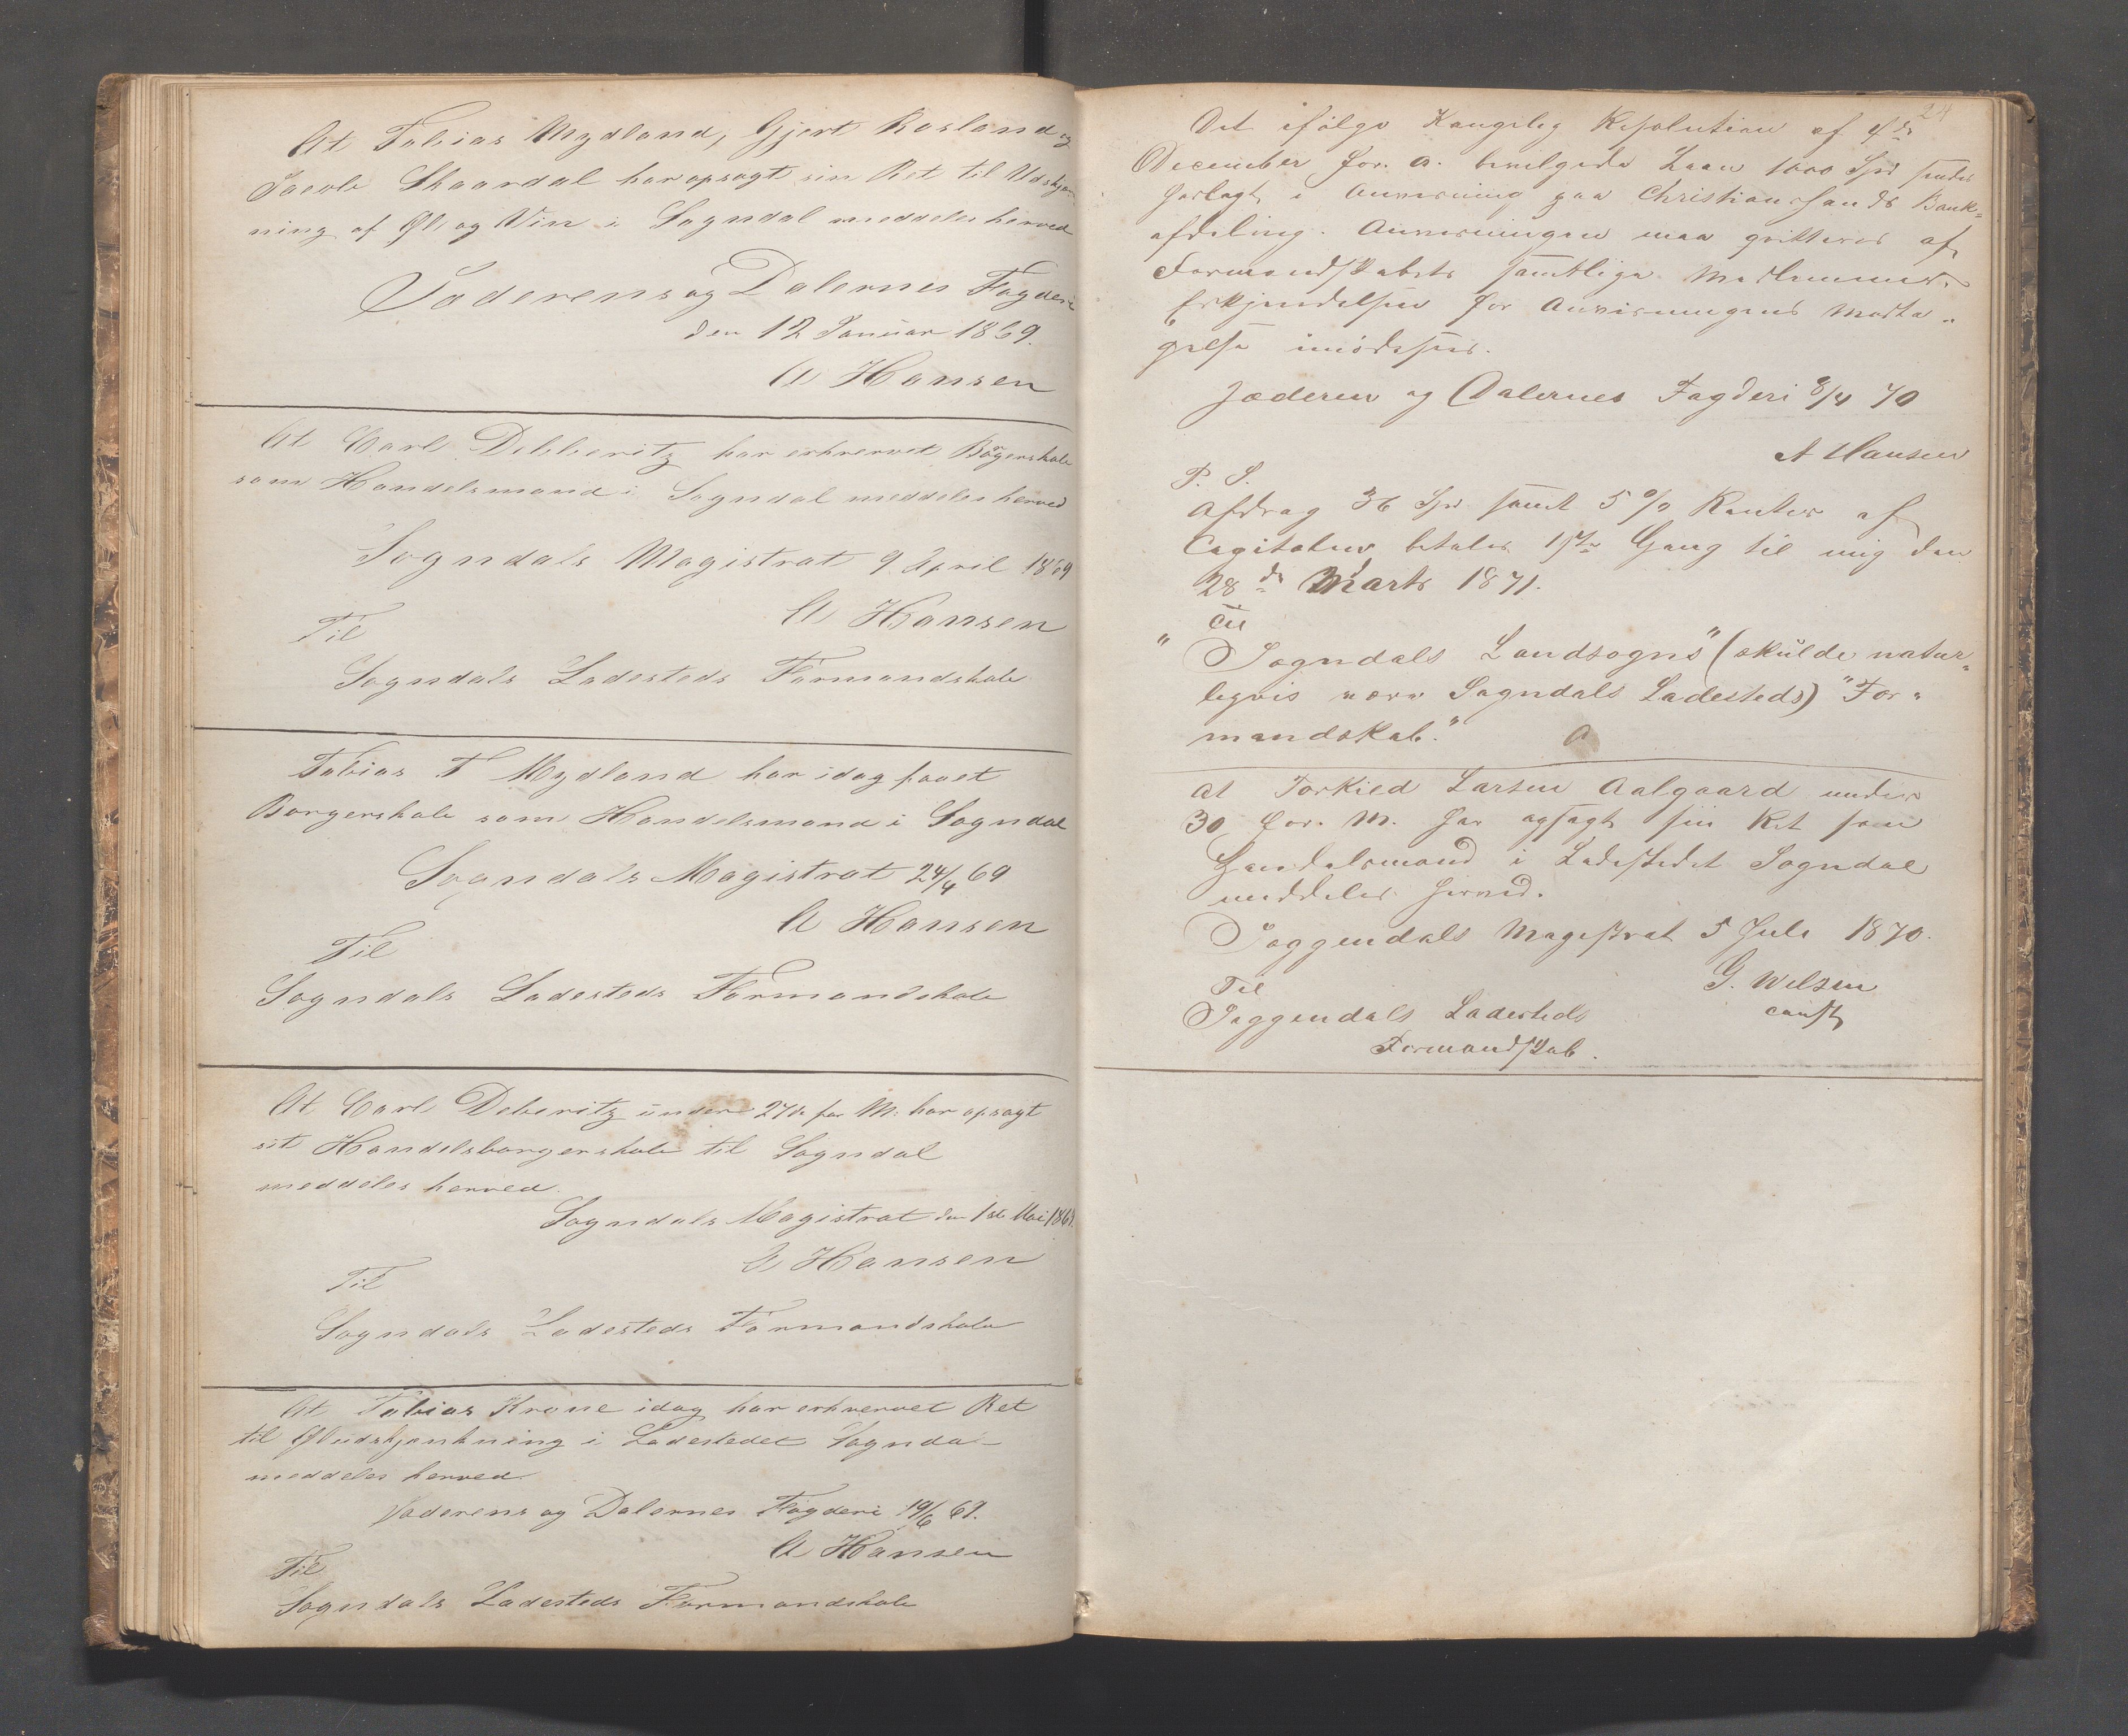 At Tobias Mydland, Gjert Rosland og
Jacob Skaardal har opsagt sin Ret til Udskjæn-
ning af Øl og Vin i Sogndal meddeles herved
Jæderens og Dalernes Fogderi
den 12 Januar 1869.
A Hansen
At Carl Debberitz har erhvervet Borgerskab
som Handelsmand i Sogndal meddeles herved
Sogndals Magistrat 9 April 1869
A Hansen
Til
Sogndals Ladesteds Formandskab
Tobias T Mydland har idag faaet
Borgerskab som Handelsmand i Sogndal
Sogndals Magistrat 24/4 69
A Hansen
Til
Sogndals Ladesteds Formandskab
At Carl Deberitz under 27de for M: har opsagt
sit Handelsborgerskab til Sogndal
meddeles herved.
Sogndals Magistrat den 1ste Mai 1869.
A Hansen
Til
Sogndals Ladesteds Formandskab
At Tobias Krone idag har erhvervet Ret
til Øludskjænkning i Ladestedet Sognda-
meddeles herved.
Jæderens og Dalernes Fogderi 19/6 69.
A Hansen
Til
Sogndals Ladesteds Formandskab
24
Det ifølge Kongelig Resolution af 4de
December for. A. bevilgede Laan 1000 Spd sendes
herlagt i Anvisning paa Christiansands Bank-
afdeling. Anvisningen maa qvitteres af
Formandskabets samtlige Medlemmer.
Erkjendelsen for Anvisningens Modta-
gelse imødesees.
Jæderen og Dalernes Fogderi 8/4 70
A Hansen
P. S.
Afdrag 36 Spd samt 5 % Renter af
Capitalen betales 1ste Gang til mig den
28de Marts 1871.
Til
"Sogndals Landsogns" (skulde natur-
ligvis være Sogndals Ladesteds) "For-
mandskab."
At Torkild Larsen Aalgaard under
30 for. M. har opsagt sin Ret som
Handelsmand i Ladestedet Sogndal
meddeles herved.
Soggendals Magistrat 5 Juli 1870.
G. Wilsen
const
Til
Soggendals Ladesteds
Formandskab.